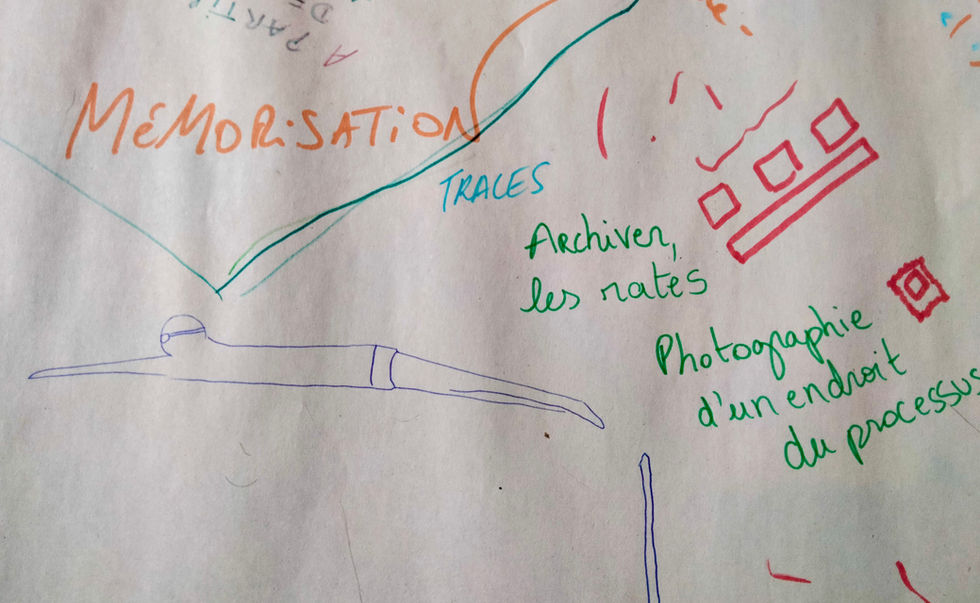 A PARTI
DE
MéMORiSATiON
TRACES
Archiver,
les ratés
Photographie
d'un endroit
du processus